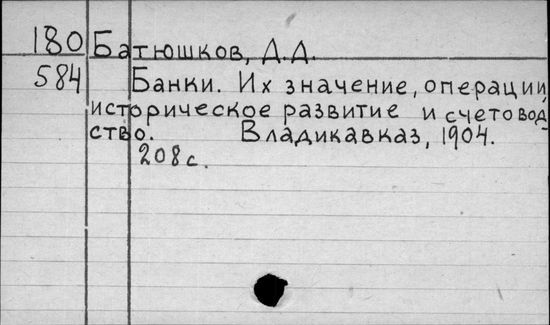 180 Батюшков, Д.Д.
584 Банки. Их значение, операции,
историческое развитие и счетовод
ство. Владикавказ, 1904.
208 с.